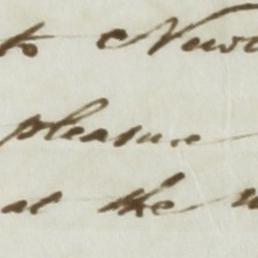 to New
pleasure
at the